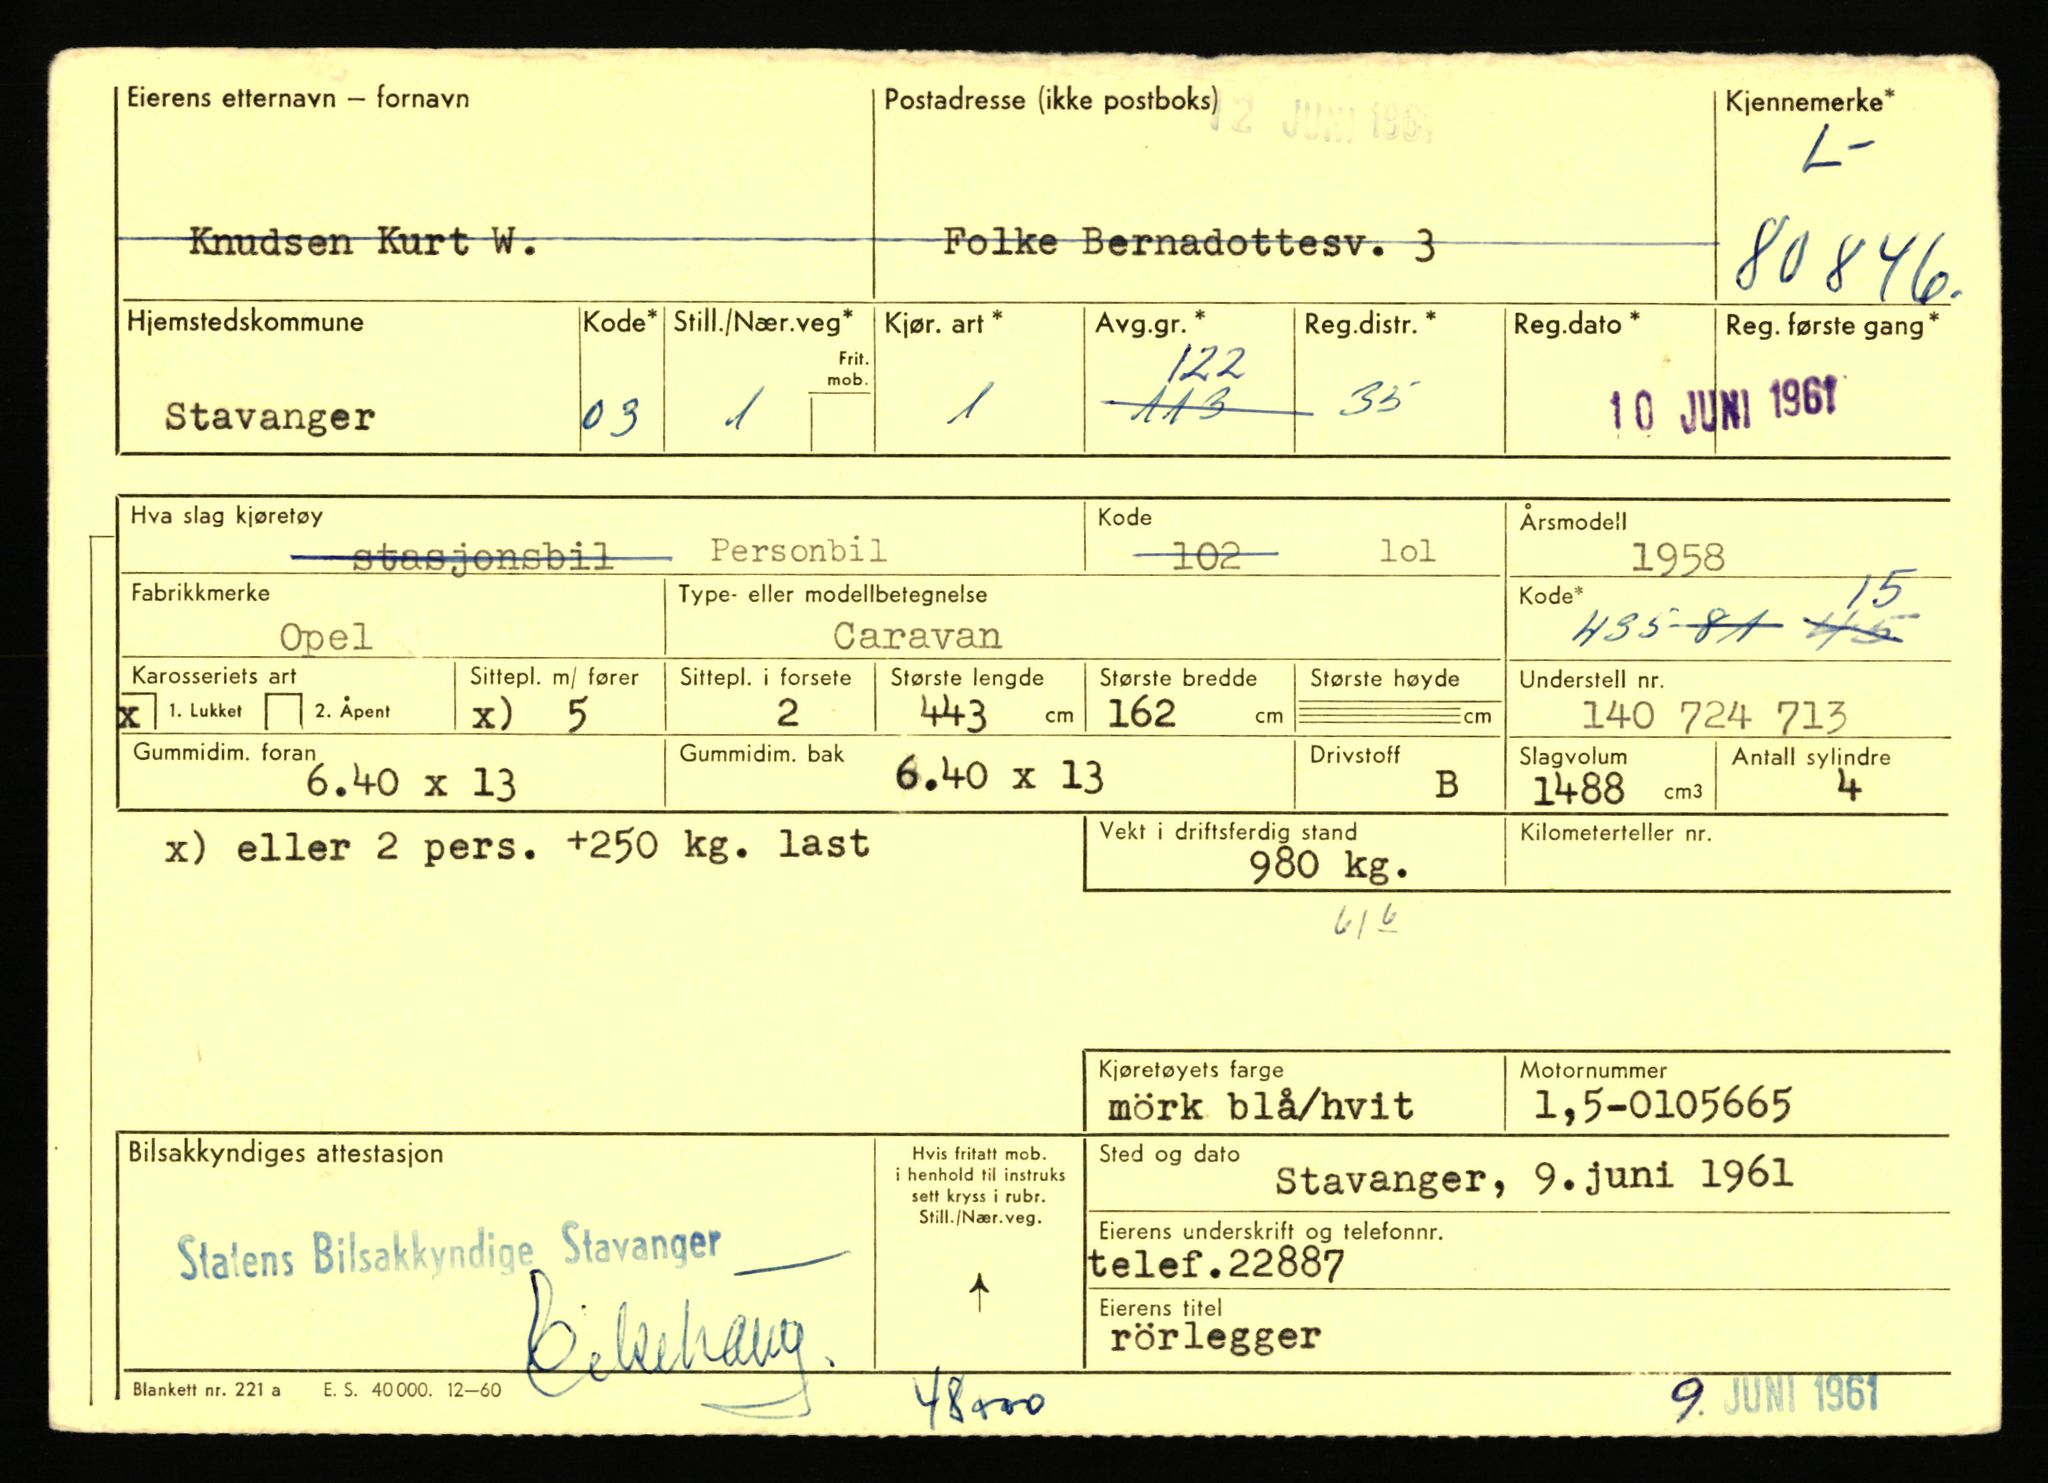 Eierens etternavn – fornavn Postadresse (ikke postboks) Kjennemerke*
12 JUNI 1961
L-
Knudsen Kurt W. Folke Bernadottesv. 3 80846.
Hjemstedskommune Kode* Still./Nær.veg* Kjør. art * Avg.gr. * Reg.distr. * Reg.dato * Reg. første gang *
Frit. mob.
122
Stavanger 03 1 1 113 35 10 JUNI 1961
Hva slag kjøretøy Kode Årsmodell
stasjonsbil Personbil 102 lol 1958
Fabrikkmerke Type- eller modellbetegnelse Kode*
15
Opel Caravan 435-81 45
Karosseriets art Sittepl. m/ fører Sittepl. i forsete Største lengde Største bredde Største høyde Understell nr.
x 1. Lukket 2. Åpent x) 5 2 443 cm 162 cm cm 140 724 713
Gummidim. foran Gummidim. bak Drivstoff Slagvolum Antall sylindre
6.40 x 13 6.40 x 13 B 1488 cm3 4
x) eller 2 pers. +250 kg. last
Vekt i driftsferdig stand Kilometerteller nr.
980 kg.
61 6
Kjøretøyets farge Motornummer
mörk blå/hvit 1,5-0105665
Bilsakkyndiges attestasjon
Hvis fritatt mob.
i henhold til instruks
sett kryss i rubr.
Still./Nær.veg.
Sted og dato
Stavanger, 9.juni 1961
Statens Bilsakkyndige Stavanger
Eierens underskrift og telefonnr.
telef.22887
Eierens titel
rörlegger
Blankett nr. 221 a E. S. 40 000. 12—60
9. JUNI 1961